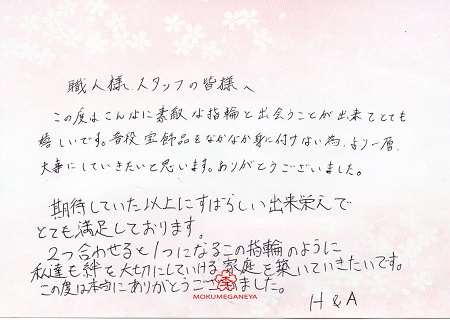 職人様、スタッフの皆様へ
この度はこんなに素敵な指輪と出会うことが出来てとても
嬉しいです。普段宝飾品をなかなか身に付けない為、より一層、
大事にしていきたいと思います。ありがとうございました。
期待していた以上にすばらしい出来栄えで
とても満足しております。
2つ合わせると1つになるこの指輪のように
私達も絆を大切にしていける家庭を築いていきたいです。
この度は本当にありがとうございました。
MOKUMEGANEYA
H & A